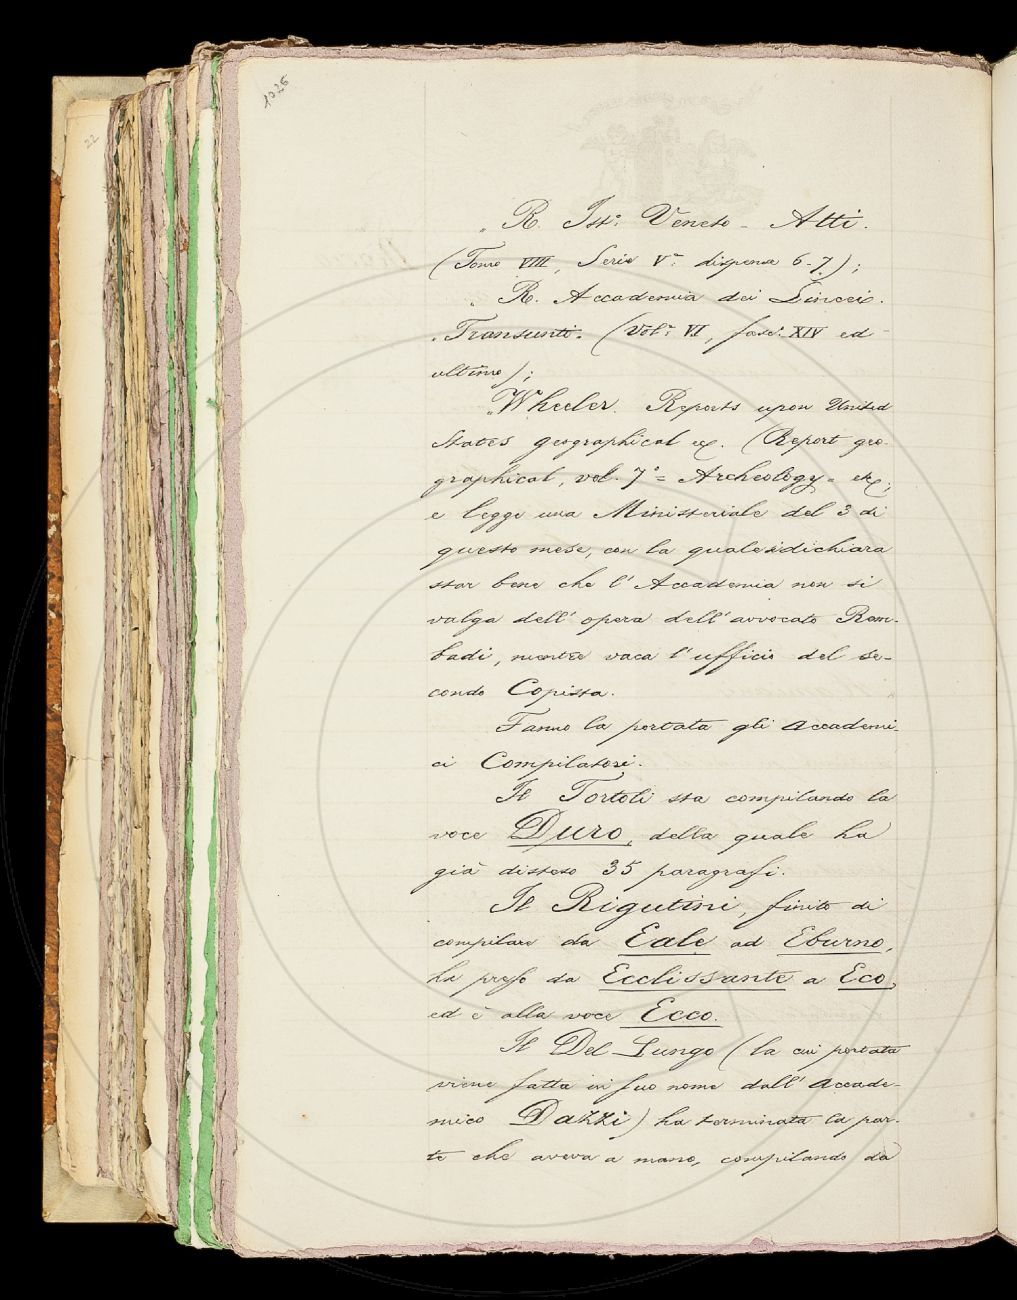 1025
22
„ R. Ist.° Veneto - Atti.
(Tomo VIII, Serie V.ª dispense 6-7);
„ R. Accademia dei Lincei.
„Transunti. (Vol.e VI, fasc. XIV ed
ultimo);
„Wheeler. Reports upon United
States geographical &. (Report geo-
graphical, vol. 7° = Archeology = etc;
e legge una Ministeriale del 3 di
questo mese, con la quale si dichiara
star bene che l'Accademia non si
valga dell'opera dell'avvocato Rem-
badi, mentre vaca l'ufficio del se-
condo Copista.
Fanno la portata gli Accademi-
ci Compilatori.
Il Tortoli sta compilando la
voce Duro, della quale ha
già disteso 35 paragrafi.
Il Rigutini, finito di
compilare da Eale ad Eburno,
ha preso da Ecclissante a Eco,
ed è alla voce Ecco.
Il Del Lungo (la cui portata
viene fatta in suo nome dall'Accade-
mico Dazzi) ha terminata la par-
te che aveva a mano, compilando da